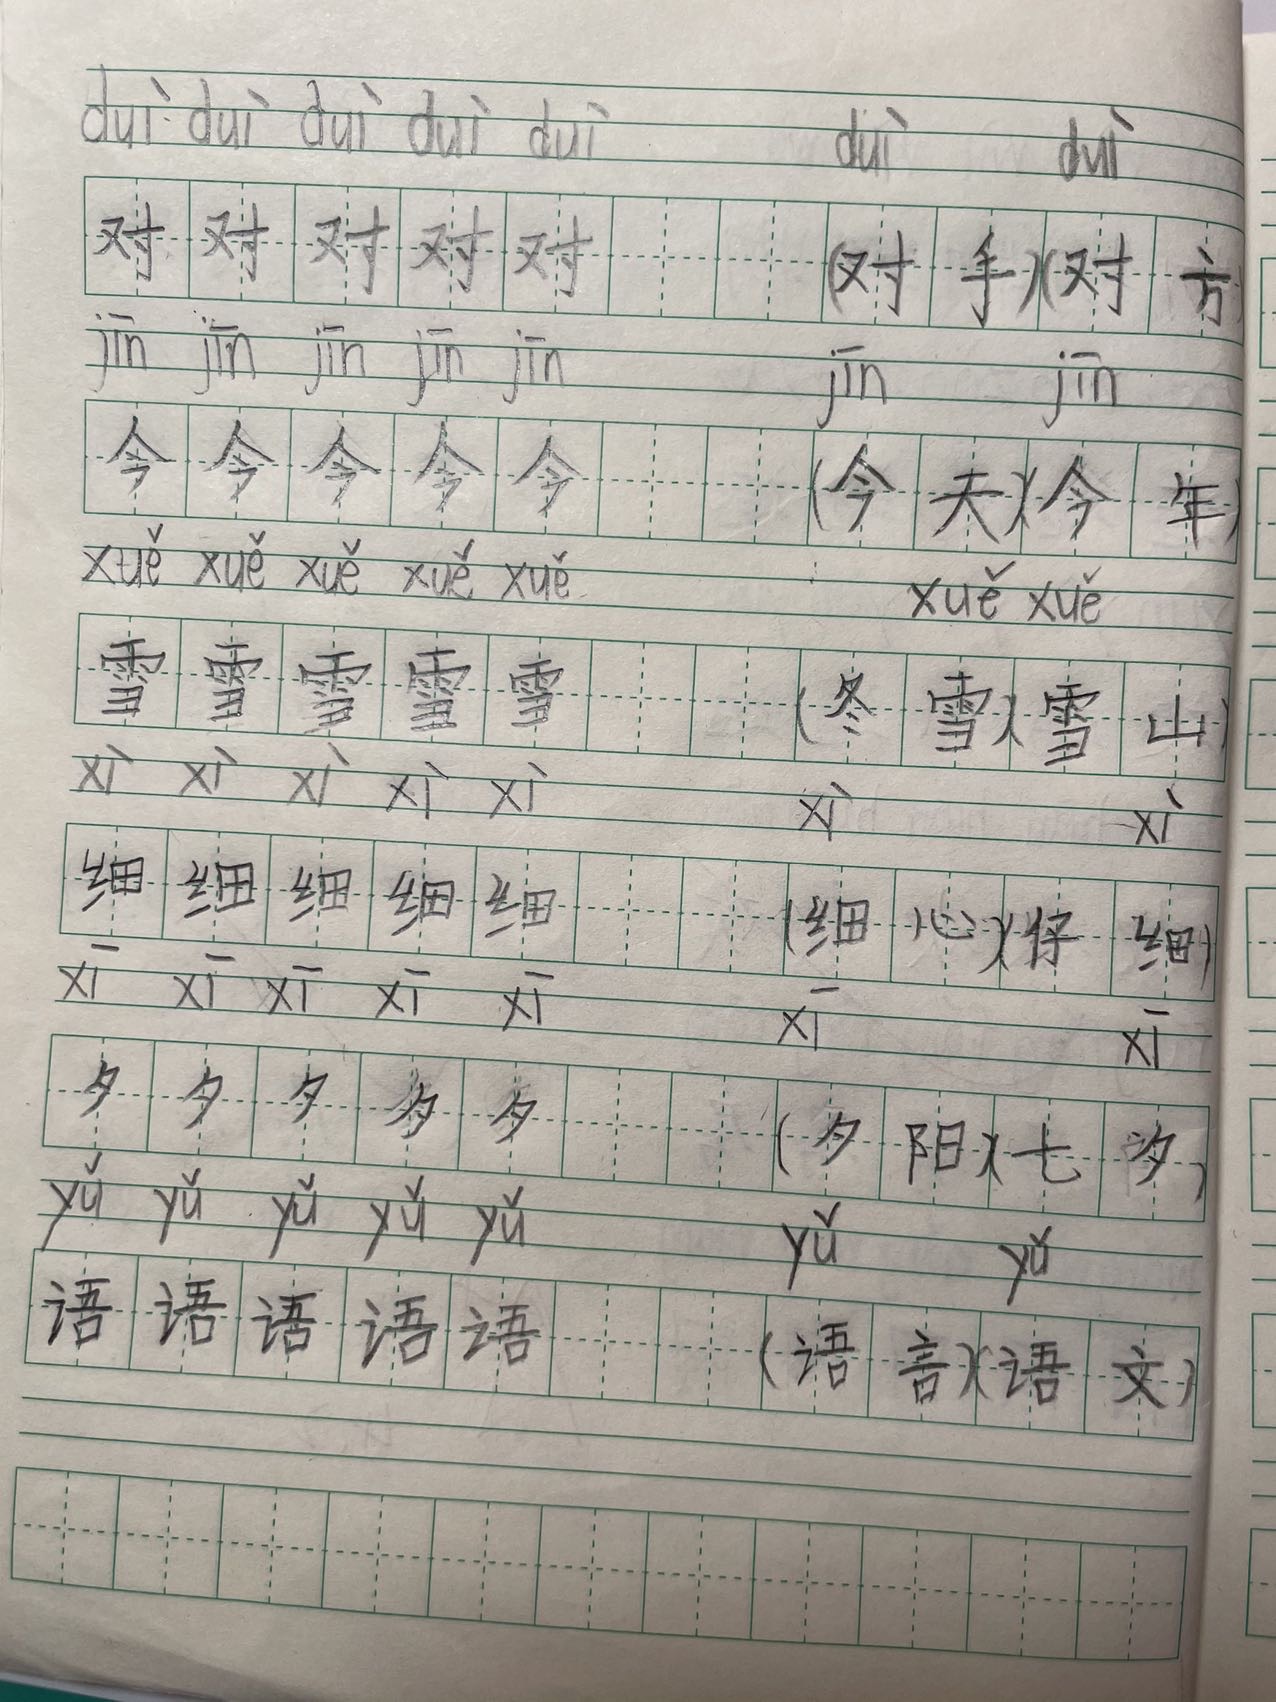 duì duì duì duì duì duì duì
对 对 对 对 对 (对 手)(对 方)
jīn jīn jīn jīn jīn jīn jīn
今 今 今 今 今 (今 天)(今 年)
xuě xuě xuě xuě xuě xuě xuě
雪 雪 雪 雪 雪 (冬 雪)(雪 山)
xì xì xì xì xì xì xì
细 细 细 细 细 (细 心)(仔 细)
xī xī xī xī xī xī xī
夕 夕 夕 夕 夕 (夕 阳)(七 汐)
yǔ yǔ yǔ yǔ yǔ yǔ yǔ
语 语 语 语 语 (语 言)(语 文)